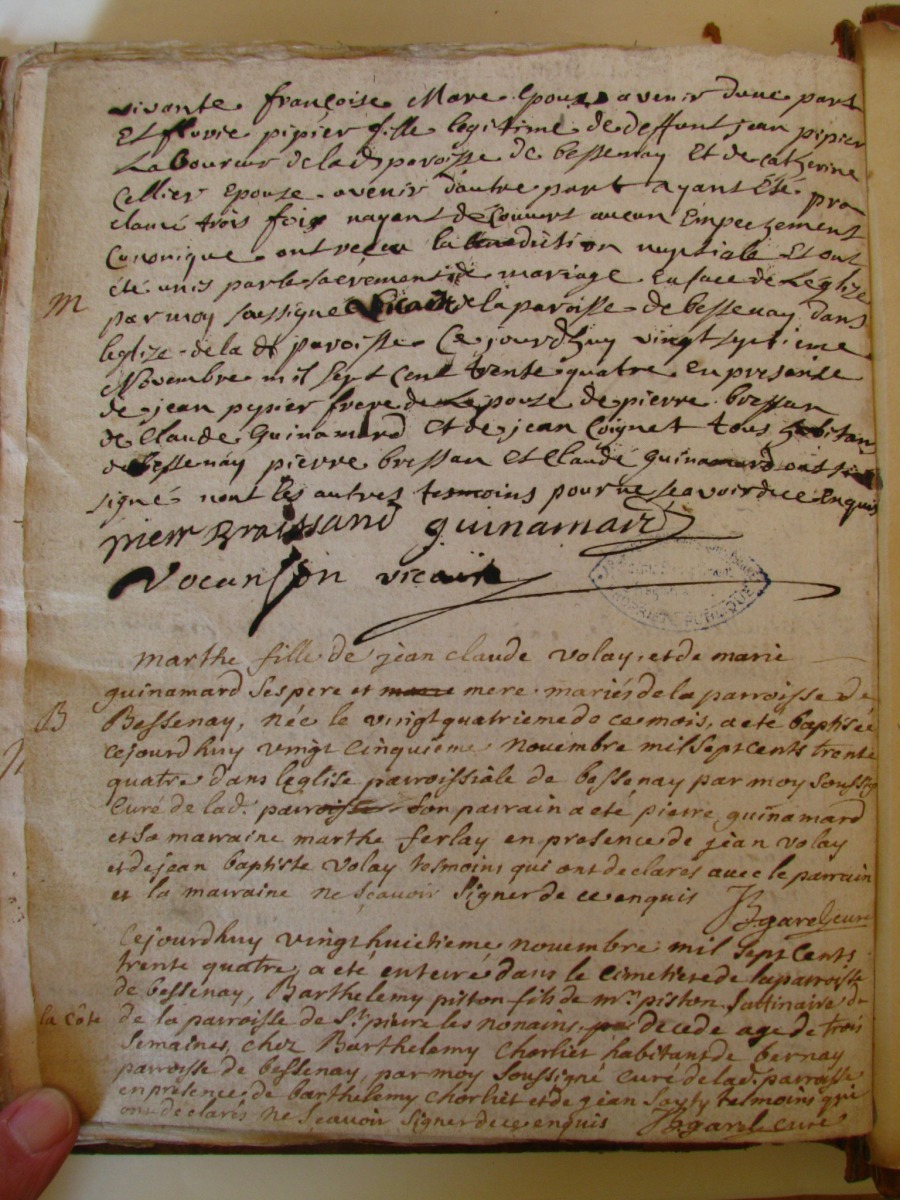 vivante françoise Mare Epouze avenir dune part
Et fluvie pipier fille legitime de deffunt jean pipier
Laboureur de lad paroisse de bessenay Et de catherine
Cellier Epouze avenir dautre part ayant Eté pro
clamé trois fois nayant découvert aucun Empechement
Canonique ont reçeu la benediction nuptiale Et ont
été unis par le sacrement de mariage En face de Leglize
M
par moy soussigné Vicaire de la paroisse de bessenay dans
leglize de la dt paroisse Ce jourdhuy vingt septieme
Novembre mil sept cent trente quatre En presense
de jean pipier frere de Lepouze de pierre bressan
de Claude Guinamard Et de jean Coignet tous habitans
de bessenay pierre bressan Et Claude guinamard ont
signé nont les autres tesmoins pour ne sçavoir de ce Enquis
pierr Braissand guinamard
Vocanson vicaire
PROPRIETE PUBLIQUE
marthe fille de jean claude volay, et de marie
guinamard ses pere et mere mariés de la parroisse de
B
Bessenay, née le vingt quatrieme de ce mois, a eté baptisée
cejourdhuy vingt cinquiéme novembre mil sept cents trente
quatre dans leglise parroissiále de bessenay par moy soussig
curé de lad. parroisse son parrain a eté pierre guinamard
et sa marraine marthe ferlay en presence de jean volay
et de jean baptiste volay tesmoins qui ont declarés avec le parrain
et la marraine ne sçavoir signer de ce enquis
JBgarel curé
Cejourdhuy vingt huictieme novembre mil sept cents
trente quatre, a eté enterré dans le cimetiere de la parroisse
de bessenay, Barthelemy piston fils de mre piston sattinaire de
la côte
de la parroisse de St pierre les nonains decede age de trois
semaines, chez Barthelemy chorliet habitant de bernay
parroisse de bessenay, par moy soussigné curé de lad. parroisse
en présence de barthelemy chorliet et de jean tesmoins qui
ont declarés ne sçauoir signer de ce enquis JBgarel curé